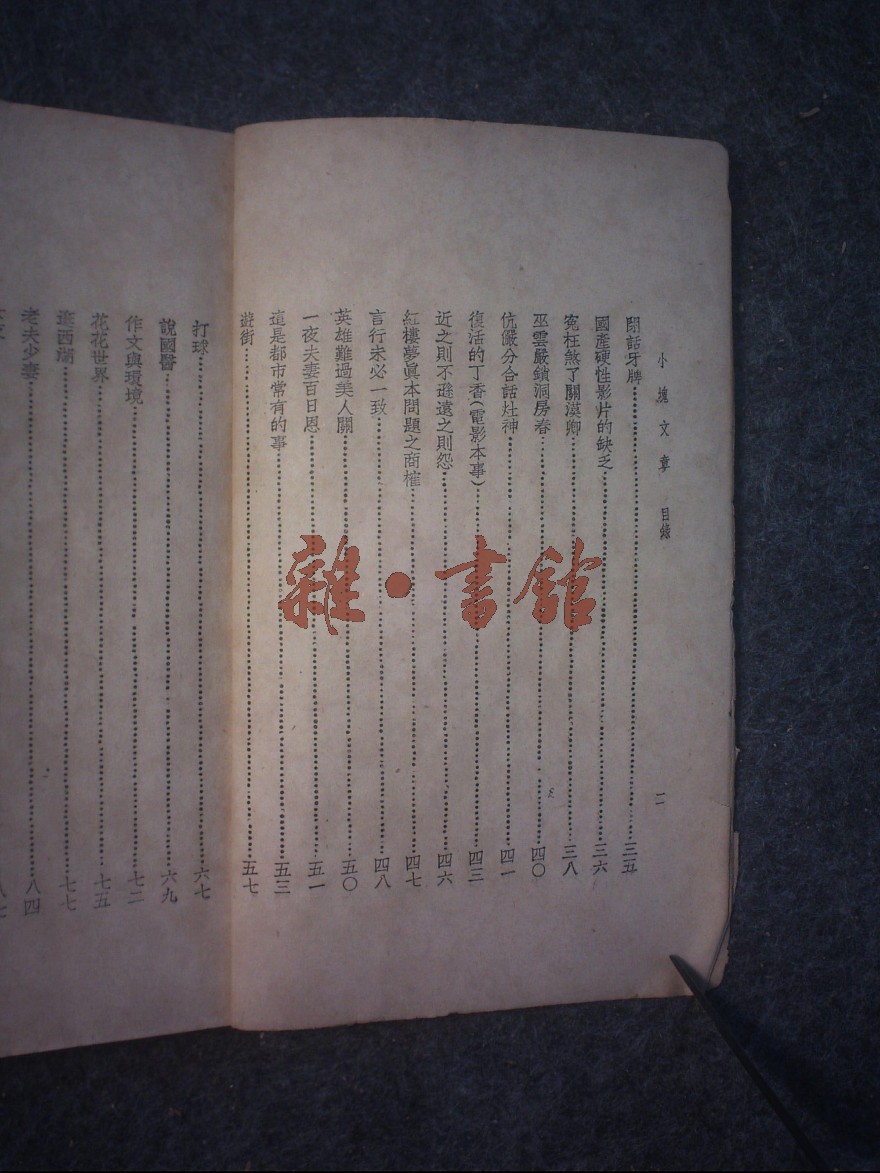 小塊文章　目錄　二
閒話牙牌……三五
國產硬性影片的缺乏……三六
冤枉煞了關漢卿……三八
巫雲嚴鎖洞房春……四〇
伉儷分合話灶神……四一
復活的丁香(電影本事)……四三
近之則不遜遠之則怨……四六
紅樓夢眞本問題之商榷……四七
言行未必一致……四八
英雄難過美人關……五〇
一夜夫妻百日恩……五一
這是都市常有的事……五三
遊街……五七
打球……六七
說國醫……六九
作文與環境……七二
花花世界……七五
遊西湖……七七
老夫少妻……八四
雜·書館